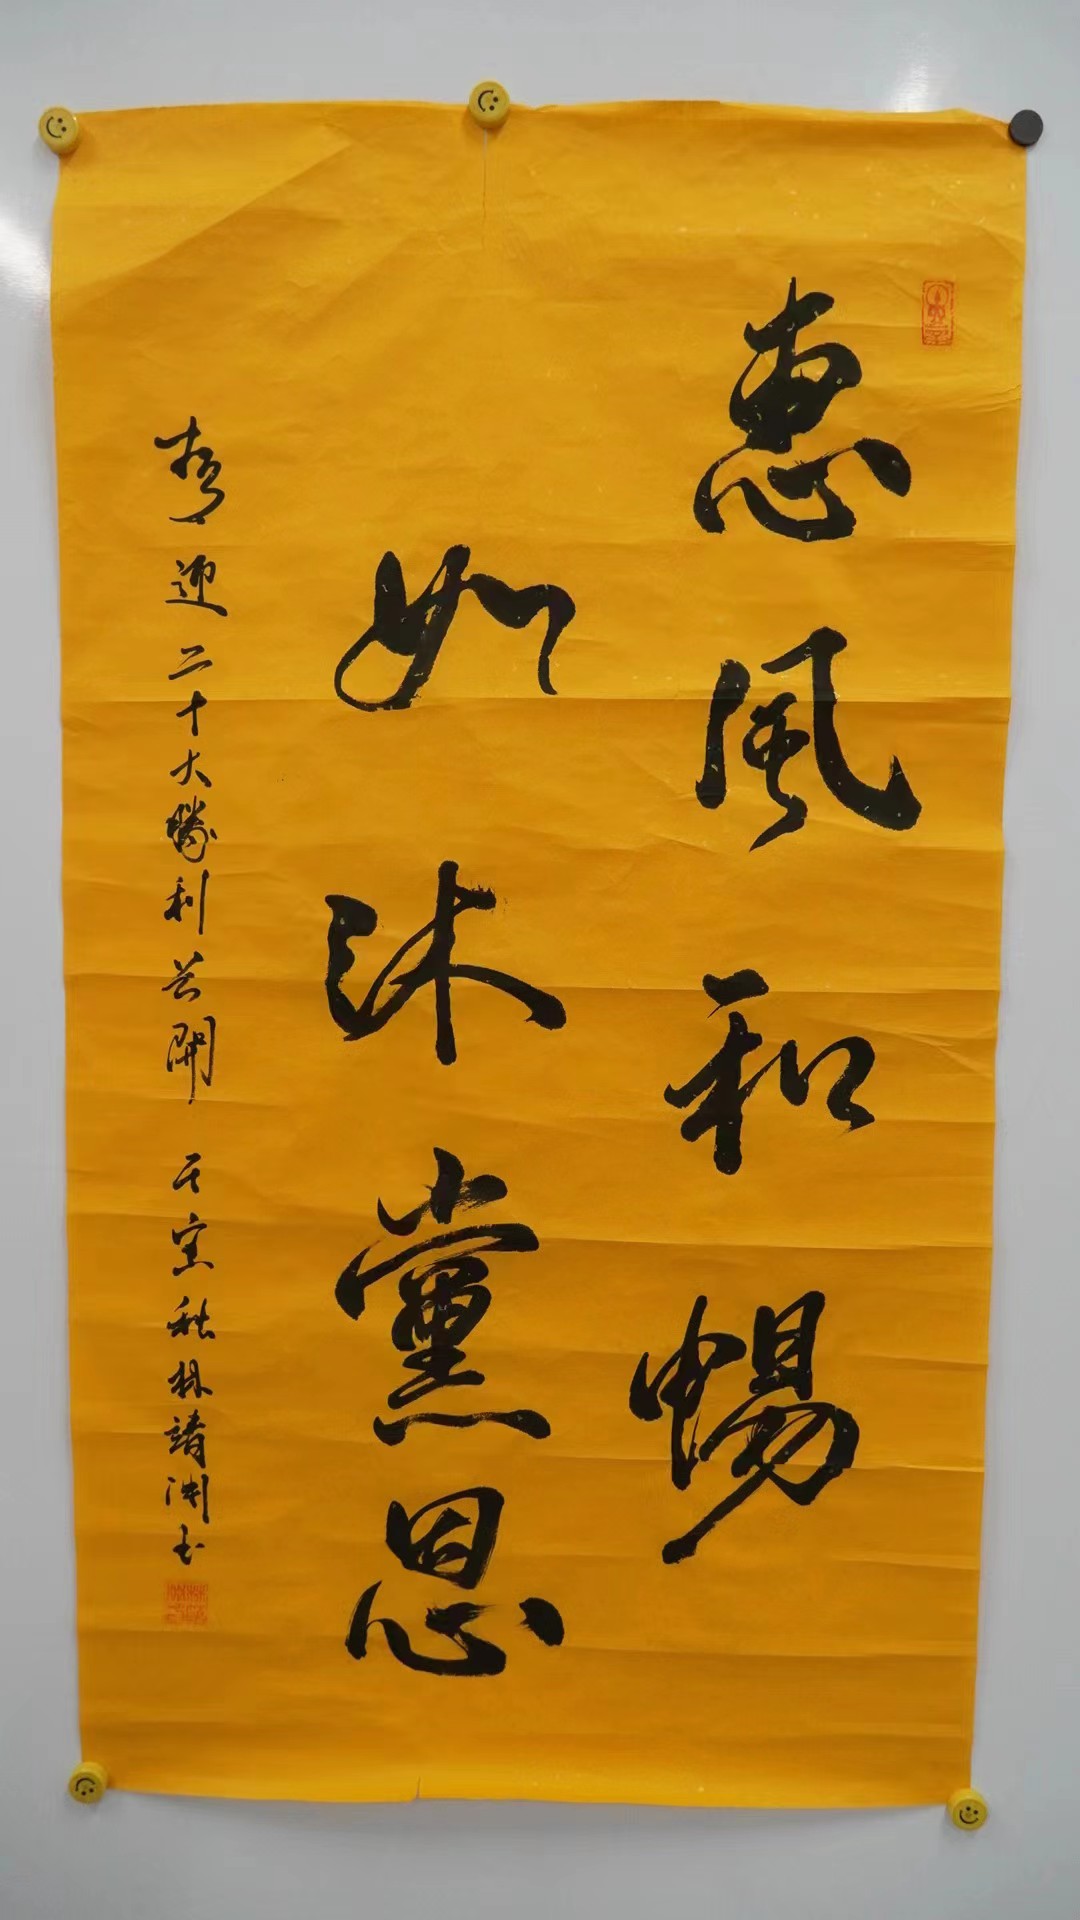 惠風和暢
如沐黨恩
喜迎二十大勝利召開 壬寅秋林靖淵书